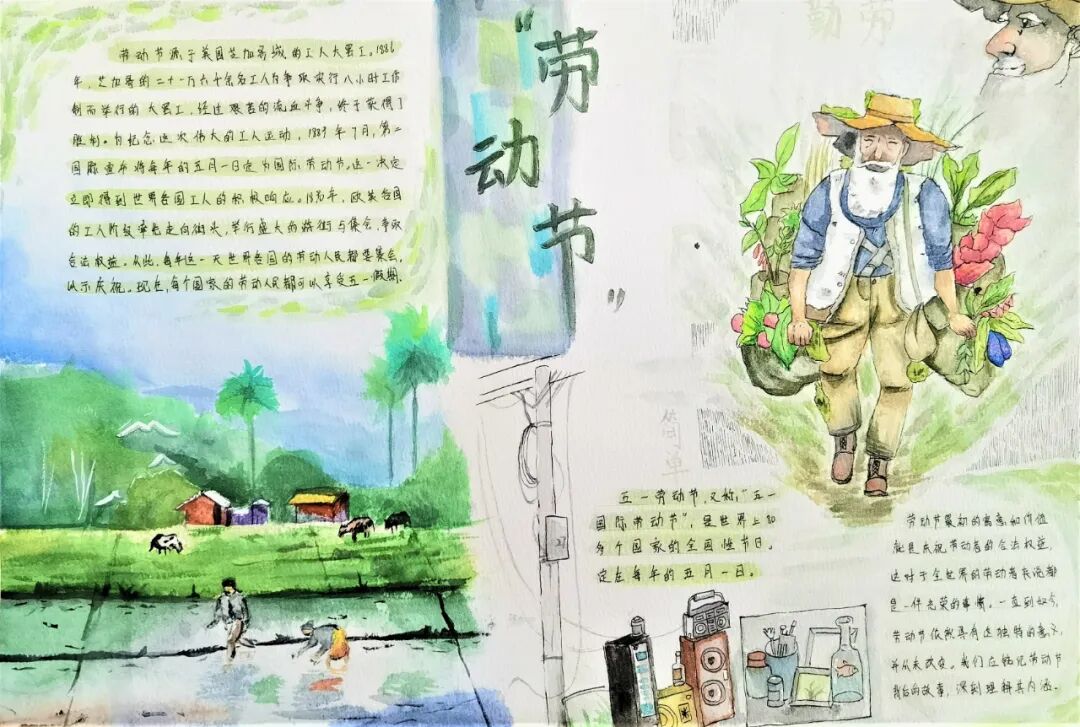 “劳动节”
劳动节源于美国芝加哥城的工人大罢工。1886
年，芝加哥的二十一万六千余名工人为争取实行八小时工作
制而举行的大罢工，经过艰苦的流血斗争，终于获得了
胜利。为纪念这次伟大的工人运动，1889年7月，第二
国际宣布将每年的五月一日定为国际劳动节。这一决定
立即得到世界各国工人的积极响应。1890年，欧美各国
的工人阶级率先走向街头，举行盛大的游街与集会，争取
合法权益。从此，每年这一天世界各国的劳动人民都要集会，
以示庆祝。现在，每个国家的劳动人民都可以享受五一假期。
勤劳
简单
五一劳动节，又称，“五一
国际劳动节”，是世界上80
多个国家的全国性节日。
定在每年的五月一日。
劳动节最初的寓意和价值
就是庆祝劳动者的合法权益，
这对于全世界的劳动者来说都
是一件光荣的事情。一直到如今，
劳动节依然具有这独特的意义，
并从未改变。我们应铭记劳动节
背后的故事，深刻理解其内涵。